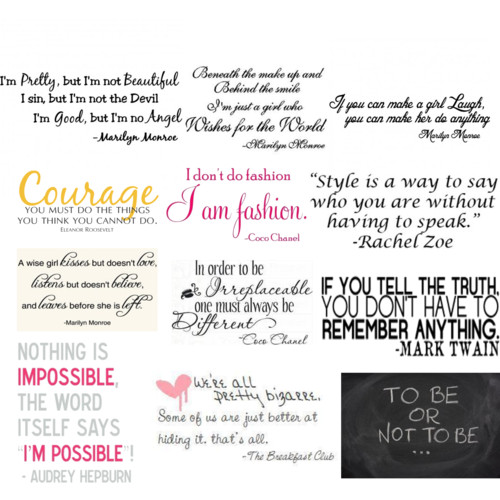 I'm Pretty, but I'm not Beautiful
I sin, but I'm not the Devil
I'm Good, but I'm no Angel
-Marilyn Monroe
Beneath the make up and
Behind the smile
I'm just a girl who
Wishes for the World
-Marilyn Monroe
If you can make a girl Laugh,
you can make her do anything
Marilyn Monroe
Courage
YOU MUST DO THE THINGS
YOU THINK YOU CANNOT DO.
ELEANOR ROOSEVELT
I don't do fashion
I am fashion.
-Coco Chanel
"Style is a way to say
who you are without
having to speak."
-Rachel Zoe
A wise girl kisses but doesn't love,
listens but doesn't believe,
and leaves before she is left.
-Marilyn Monroe
In order to be
Irreplaceable
one must always be
Different
-Coco Chanel
IF YOU TELL THE TRUTH,
YOU DON'T HAVE TO
REMEMBER ANYTHING.
-MARK TWAIN
NOTHING IS
IMPOSSIBLE,
THE WORD
ITSELF SAYS
"I'M POSSIBLE"!
- AUDREY HEPBURN
we're all
pretty bizarre.
Some of us are just better at
hiding it. that's all.
-The Breakfast Club
TO BE
OR
NOT TO BE
...